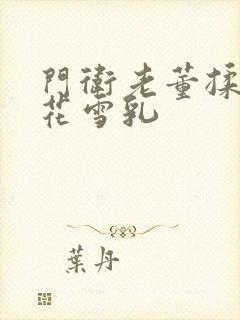 門衛老董揉
花雪乳
葉丹